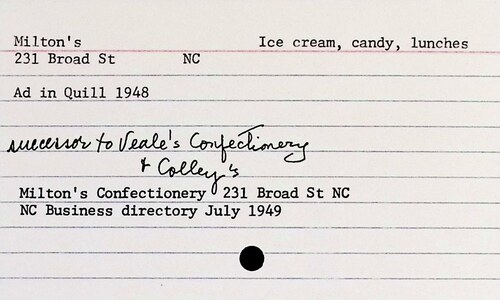 Milton's Ice cream, candy, lunches
231 Broad St NC
Ad in Quill 1948
successor to Veale's Confectionery
+ Colley's
Milton's Confectionery 231 Broad St NC
NC Business directory July 1949